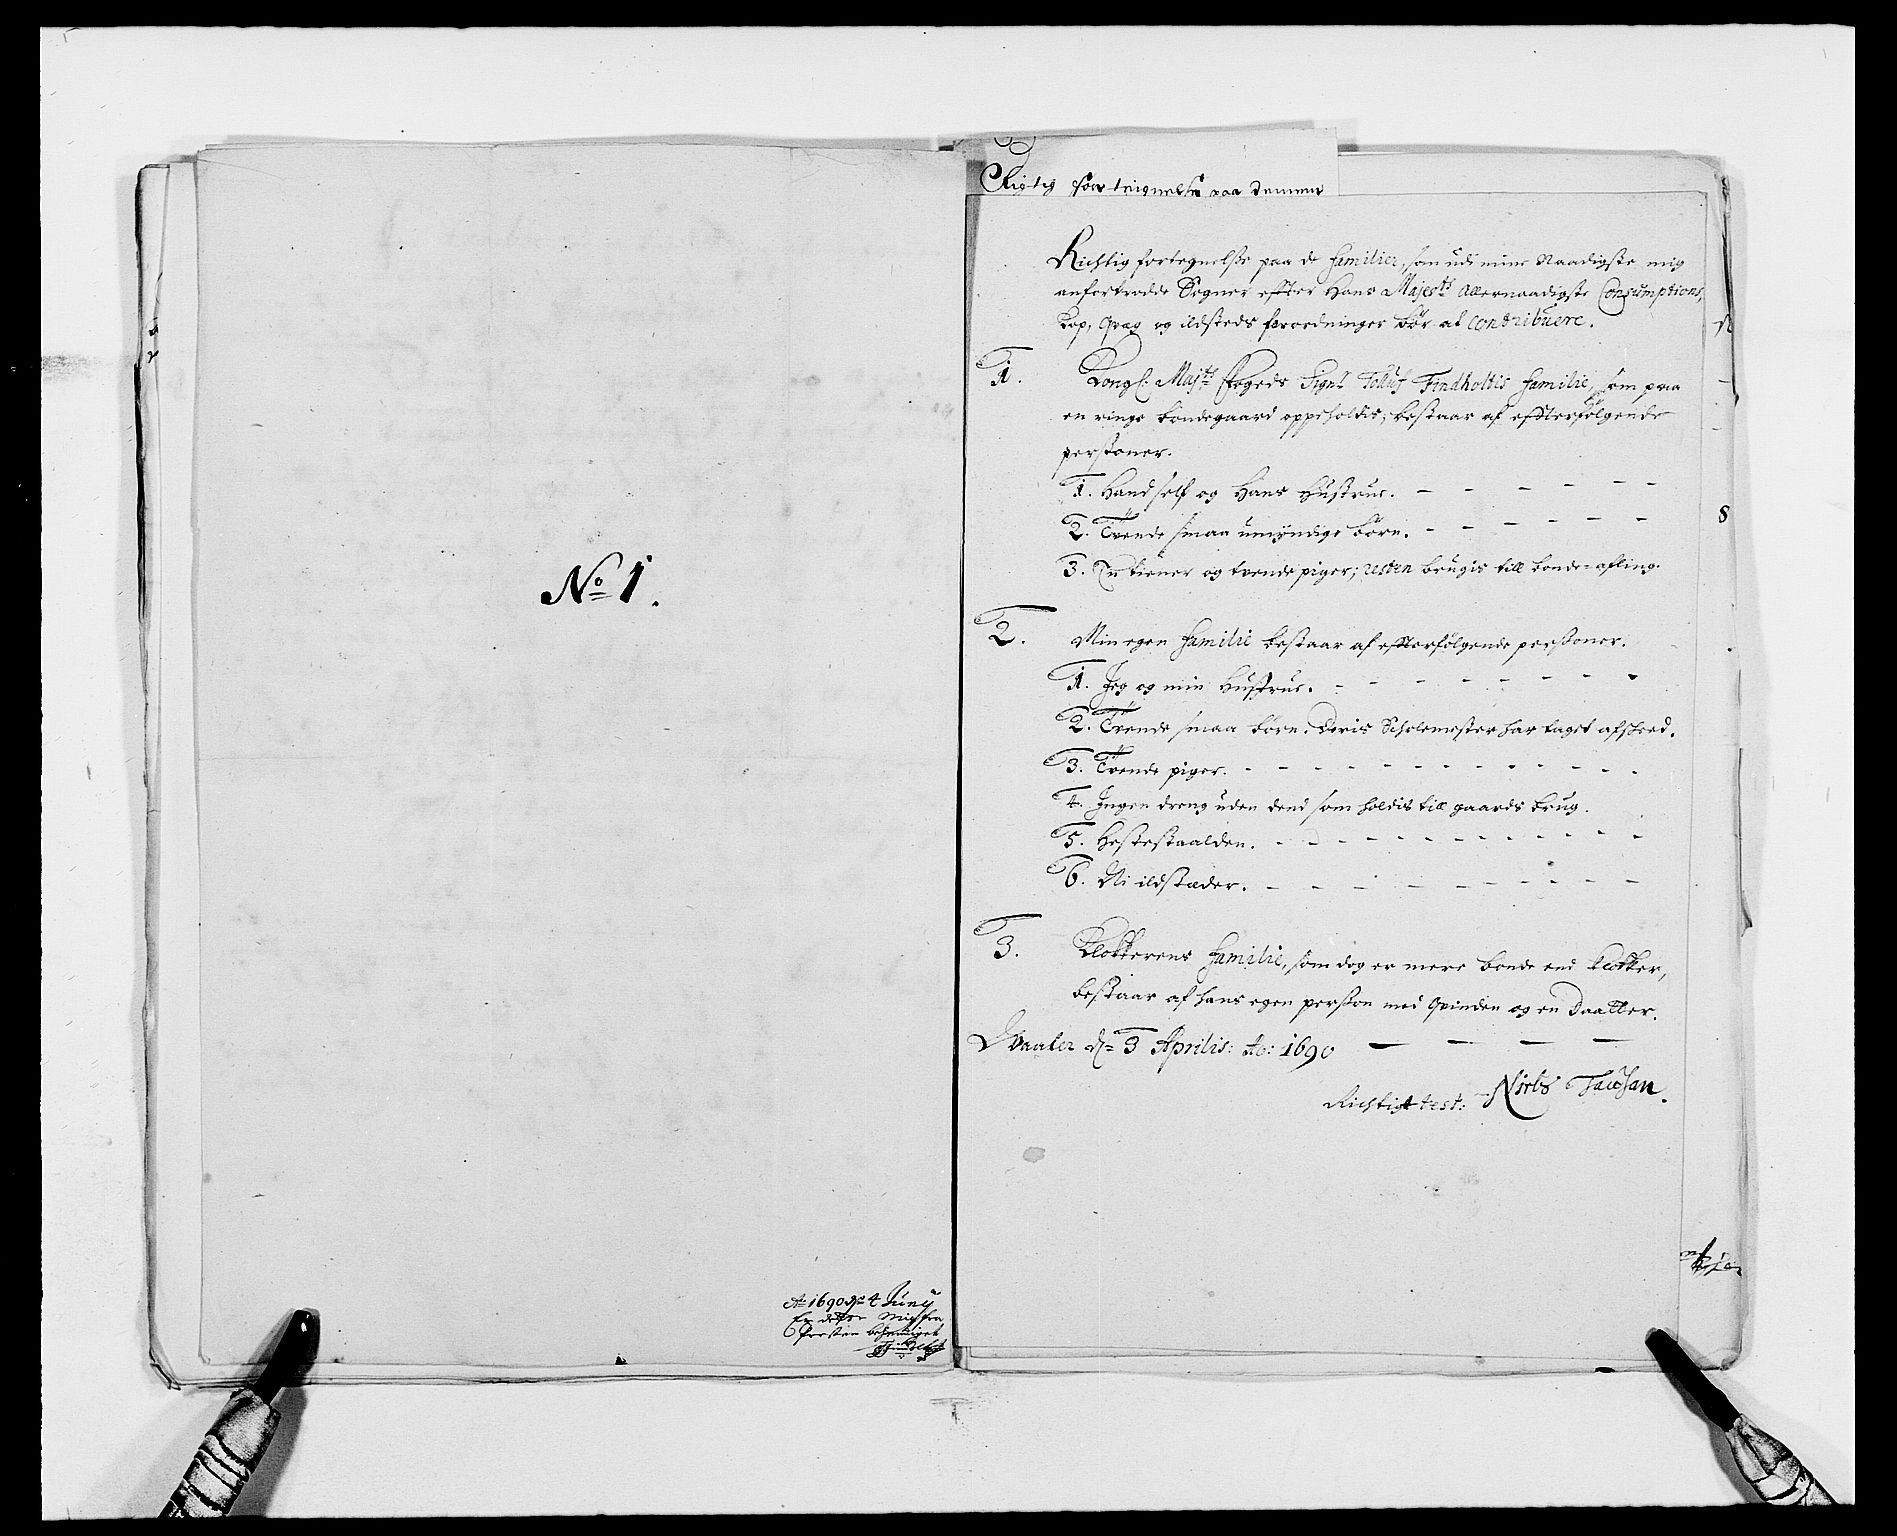 No 1.
Ao 1690 dn 4 Junij
Er dette mig fra
Presten
Rigtig for teignelse paa demem
Richtig fortegnelse paa de familier, som udi mine Naadigste mig
anfortrodde Sogner effter Hans Majestts allernaadigste Consumptions,
Kop, Qvæg og ildsteds forordninger bør at contribuere.
1. Kongl: Majtts Fogeds Signr Tolluf Findholtis familie, som paa
en ringe bondegaard oppeholdis, bestaar af effterfølgende
personer.
1. Hand self og Hans Hustrue. - - - - - -
2. Tvende smaa umyndige børn. - - - - - -
3. En tiener og tvende piger; resten brugis till bonde=afling.
2. Min egen familie bestaar af effterfølgende persohner.
1. Jeg og min Hustrue. - - - - - - - -
2. Tvende smaa børn. Deris Scholemester har taget afskeed.
3. Tvende piger. - - - - - - - - - - - -
4. Ingen dreng uden dend som holdis till gaards brug.
5. Hestestaalden. - - - - - - - - - - - -
6. Ni ildstæder. - - - - - - - - -
3. Klokkerens familie, som dog er mere bonde end klokker,
bestaar af hans egen person med qvinden og en Daatter.
Vaaler dn 3 Aprilis: Ao: 1690 - - - -
Richtigt test: Niels
8